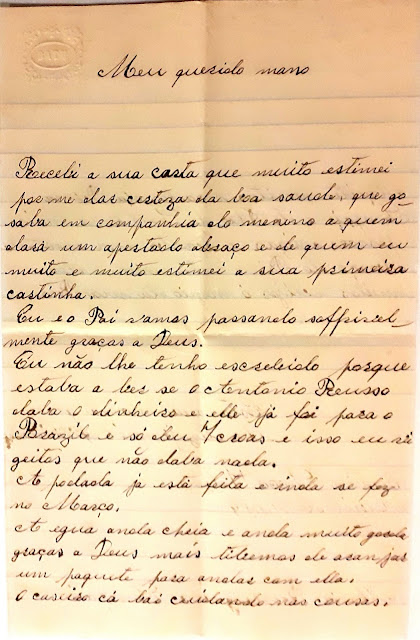 Meu querido mano
Recebi a sua carta que muito estimei
por me dar certeza da boa saude, que go
saba em companhia do menino a quem
dará um apertado abraço e de quem eu
muito e muito estimei a sua primeira
cartinha.
Eu e o Pai vamos passando soffrivel
mente graças a Deus.
Eu não lhe tenho escrebido porque
estaba a ber se o Antonio Russo
daba o dinheiro e elle já foi para o
Brazil e só deu 7 croas e isso eu
geitos que não daba nada.
A podada já está feita e inda se fez
no Março.
A egua anda cheia e anda muito gorda
graças a Deus mais tibemos de aranjar
um paquete para andar com ella.
O caseiro cá bai cuidando nas cousas.